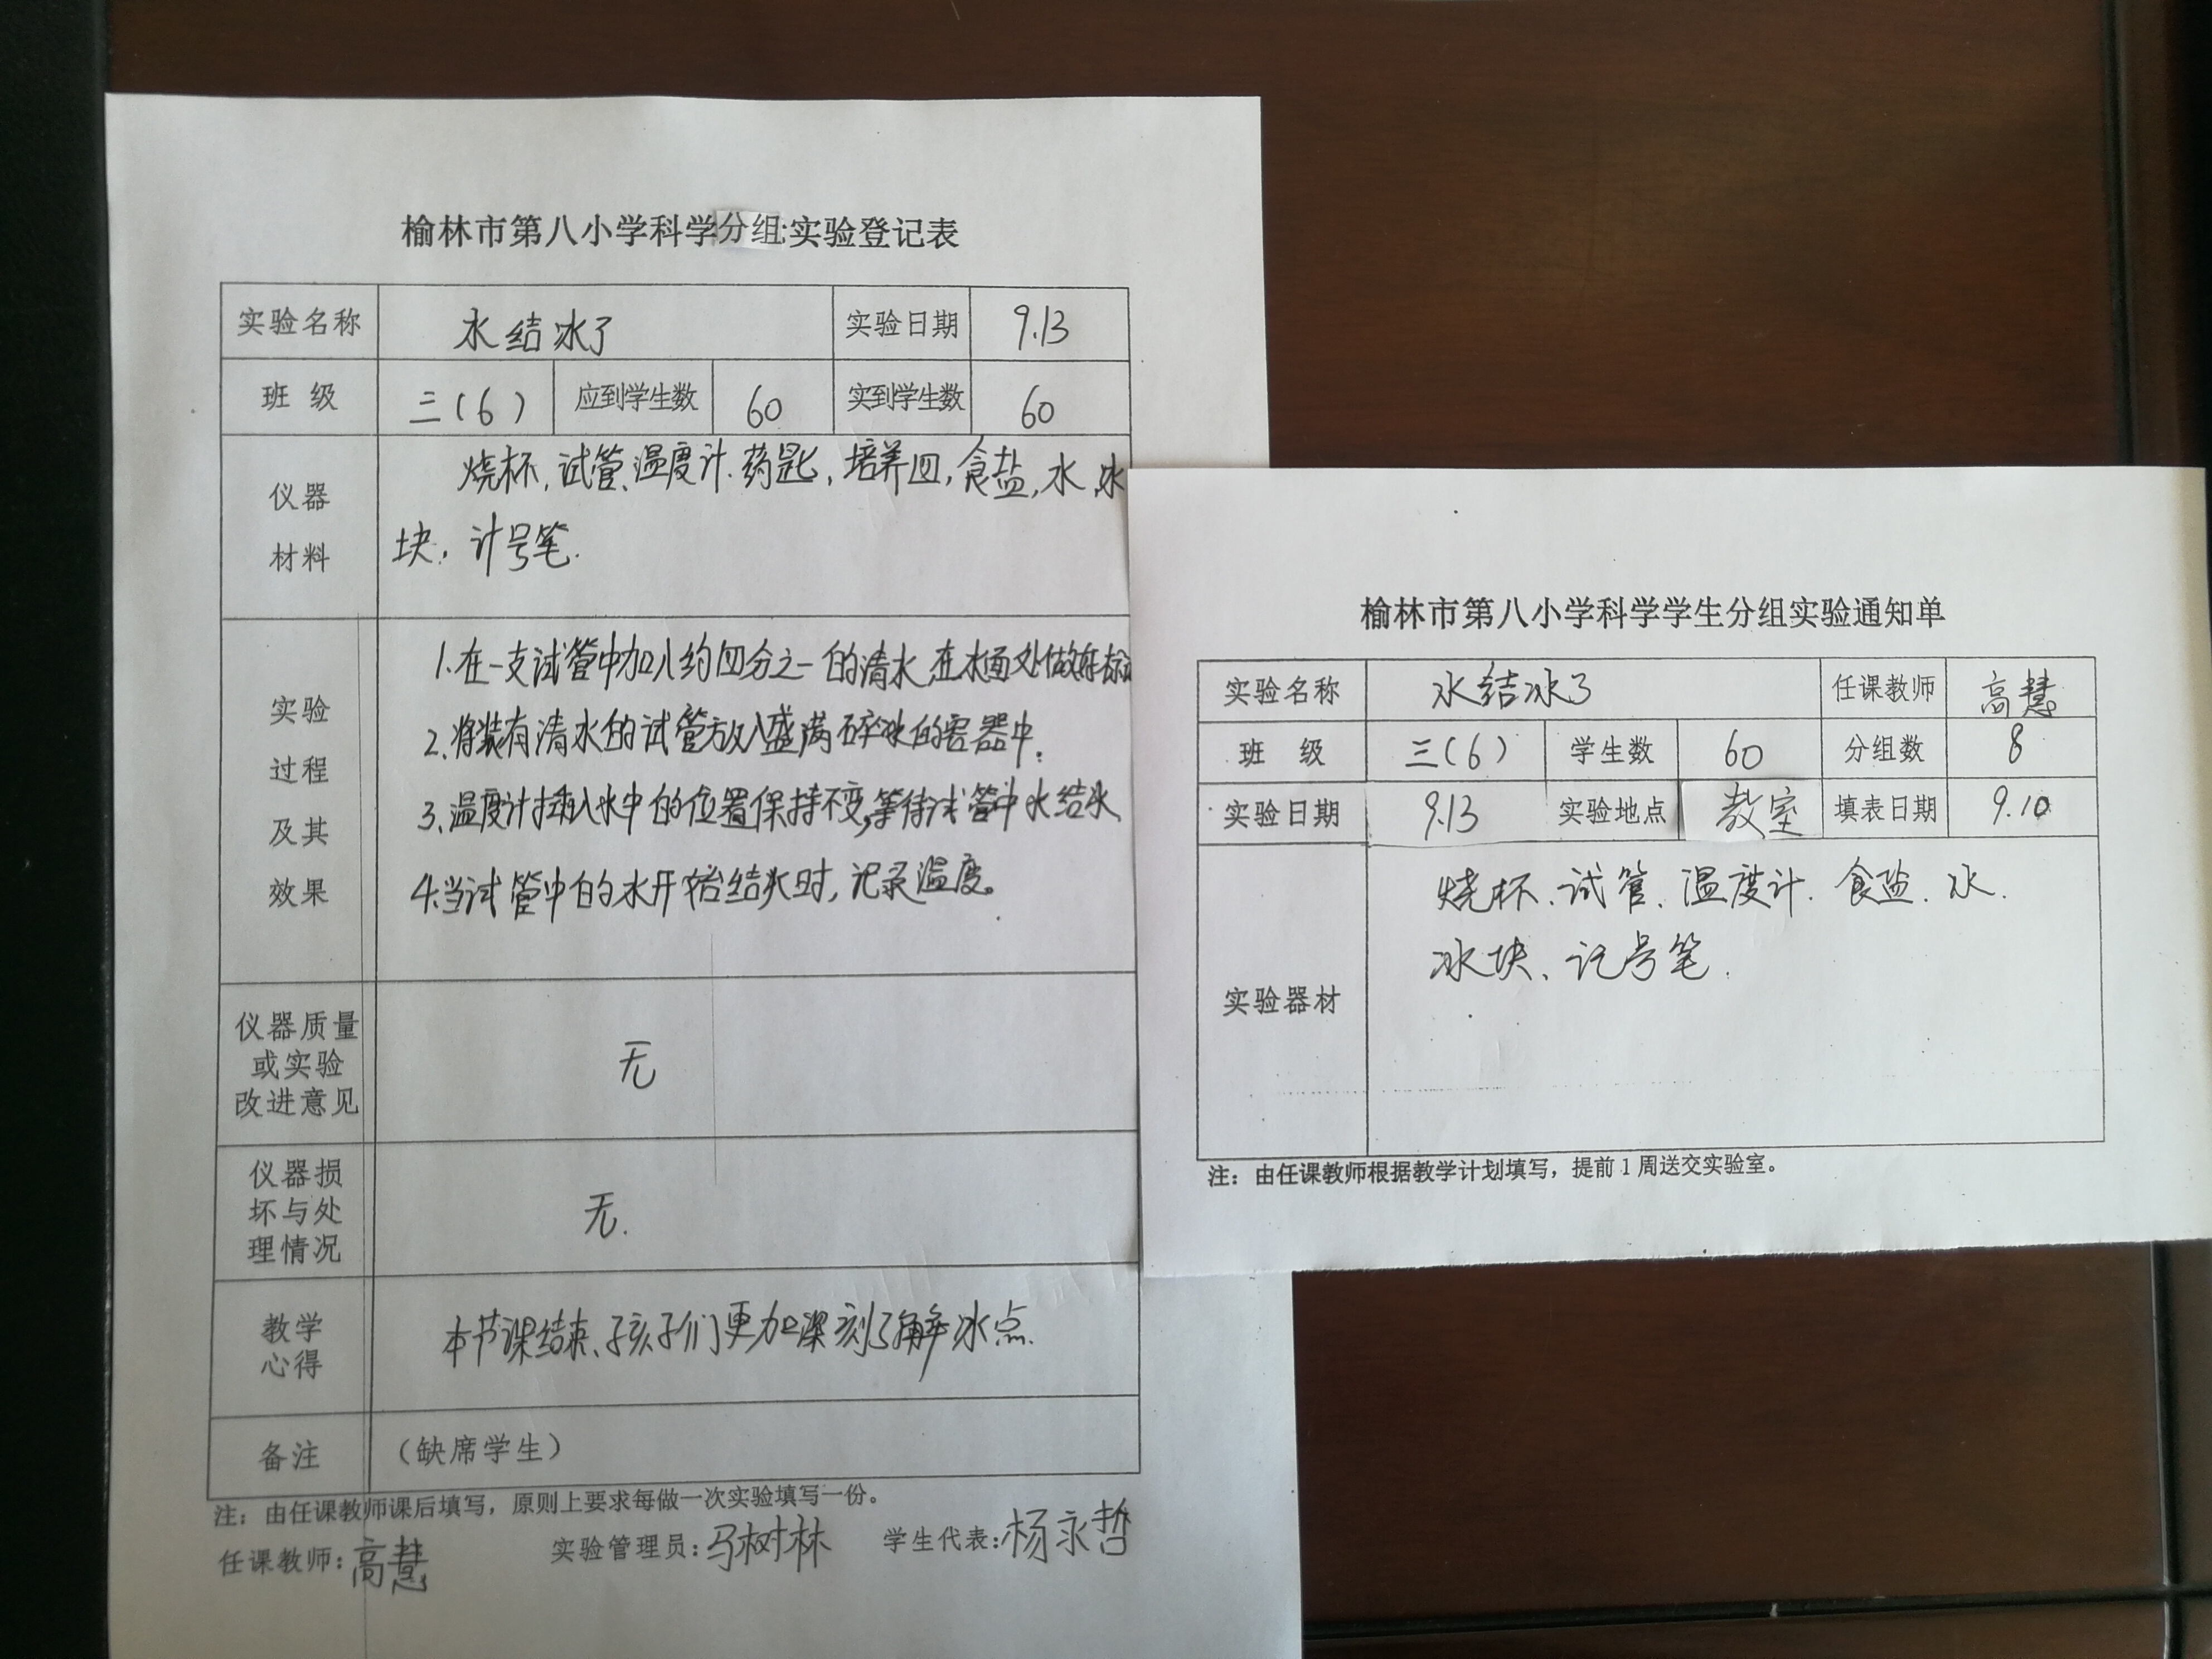 榆林市第八小学科学分组实验登记表
实验名称 水结冰了 实验日期 9.13
班 级 三(6) 应到学生数 60 实到学生数 60
仪器
材料
烧杯、试管、温度计、药匙、培养皿,食盐,水,冰
块,计号笔.
实验
过程
及其
效果
1.在一支试管中加入约四分之一的清水,在水面处做好标
2、将装有清水的试管放入盛满碎冰的容器中。
3、温度计插入水中的位置保持不变,等待试管中水结冰
4.当试管中的水开始结冰时,记录温度。
仪器质量
或实验
改进意见
无
仪器损
坏与处
理情况
无.
教学
心得
本节课结束、孩子们更加深刻了解冰点.
备注 (缺席学生)
注:由任课教师课后填写,原则上要求每做一次实验填写一份。
任课教师:高慧 实验管理员:马树林 学生代表:杨永哲
榆林市第八小学科学学生分组实验通知单
实验名称 水结冰了 任课教师 高慧
班 级 三(6) 学生数 60 分组数 8
实验日期 9.13 实验地点 教室 填表日期 9.10
实验器材
烧杯、试管、温度计.食盐.水.
冰块、记号笔.
注:由任课教师根据教学计划填写,提前1周送交实验室。